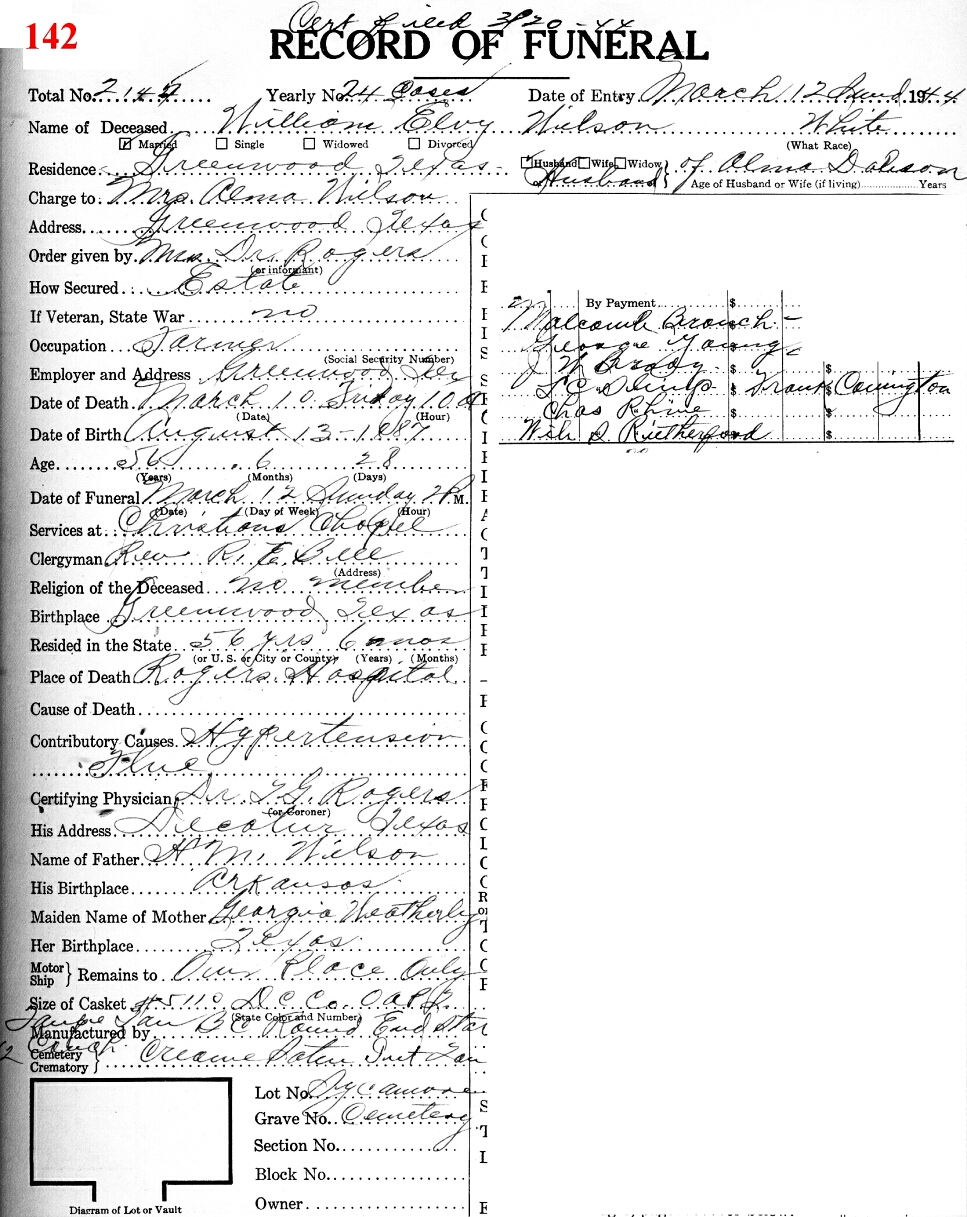 142
Cert filed 3/20-44
RECORD OF FUNERAL
Total No. 214 Yearly No. 24 Cases Date of Entry March 12 Sund 1944
Name of Deceased William Elvy Wilson White
(What Race)
Married Single Widowed Divorced
Residence Greenwood Texas Husband Wife Widow } of Alma Dobson
Husband Age of Husband or Wife (if living) Years
Charge to Mrs. Alma Wilson
Address Greenwood Texas
Order given by Mrs. Dr. Rogers
(or informant)
How Secured Estate
If Veteran, State War no
Occupation Farmer
(Social Security Number)
Employer and Address Greenwood Tex
Date of Death March 10 Friday 10
(Date) (Hour)
Date of Birth August 13-1887
Age 56 6 28
(Years) (Months) (Days)
Date of Funeral March 12 Sunday 2 P.M.
(Date) (Day of Week) (Hour)
Services at Christians Chapel
Clergyman Rev R. E. Bell
(Address)
Religion of the Deceased no member
Birthplace Greenwood, Texas
Resided in the State 56 yrs 6 mos
(or U. S. or City or County) (Years) (Months)
Place of Death Rogers Hospital
Cause of Death
Contributory Causes Hypertension
Flue
Certifying Physician Dr. T.G. Rogers
(or Coroner)
His Address Decatur Texas
Name of Father H. M. Wilson
His Birthplace Arkansas
Maiden Name of Mother Georgia Weatherly
Her Birthplace Texas
Motor Ship } Remains to Our Place Only
Size of Casket #5110 D C Co.
(State Color and Number)
Manufactured by Tan B C Round End Star
Couch
Cemetery Crematory } Creame Satin Int Tan
Lot No. Sycamore
Grave No. Cemetery
Section No.
Block No.
Owner
Diagram of Lot or Vault
By Payment $
Malcomb Branch -
George Young
J W Brady
$ Frank Covington
Chas Rhine $ $
Wish D. Rutherford $